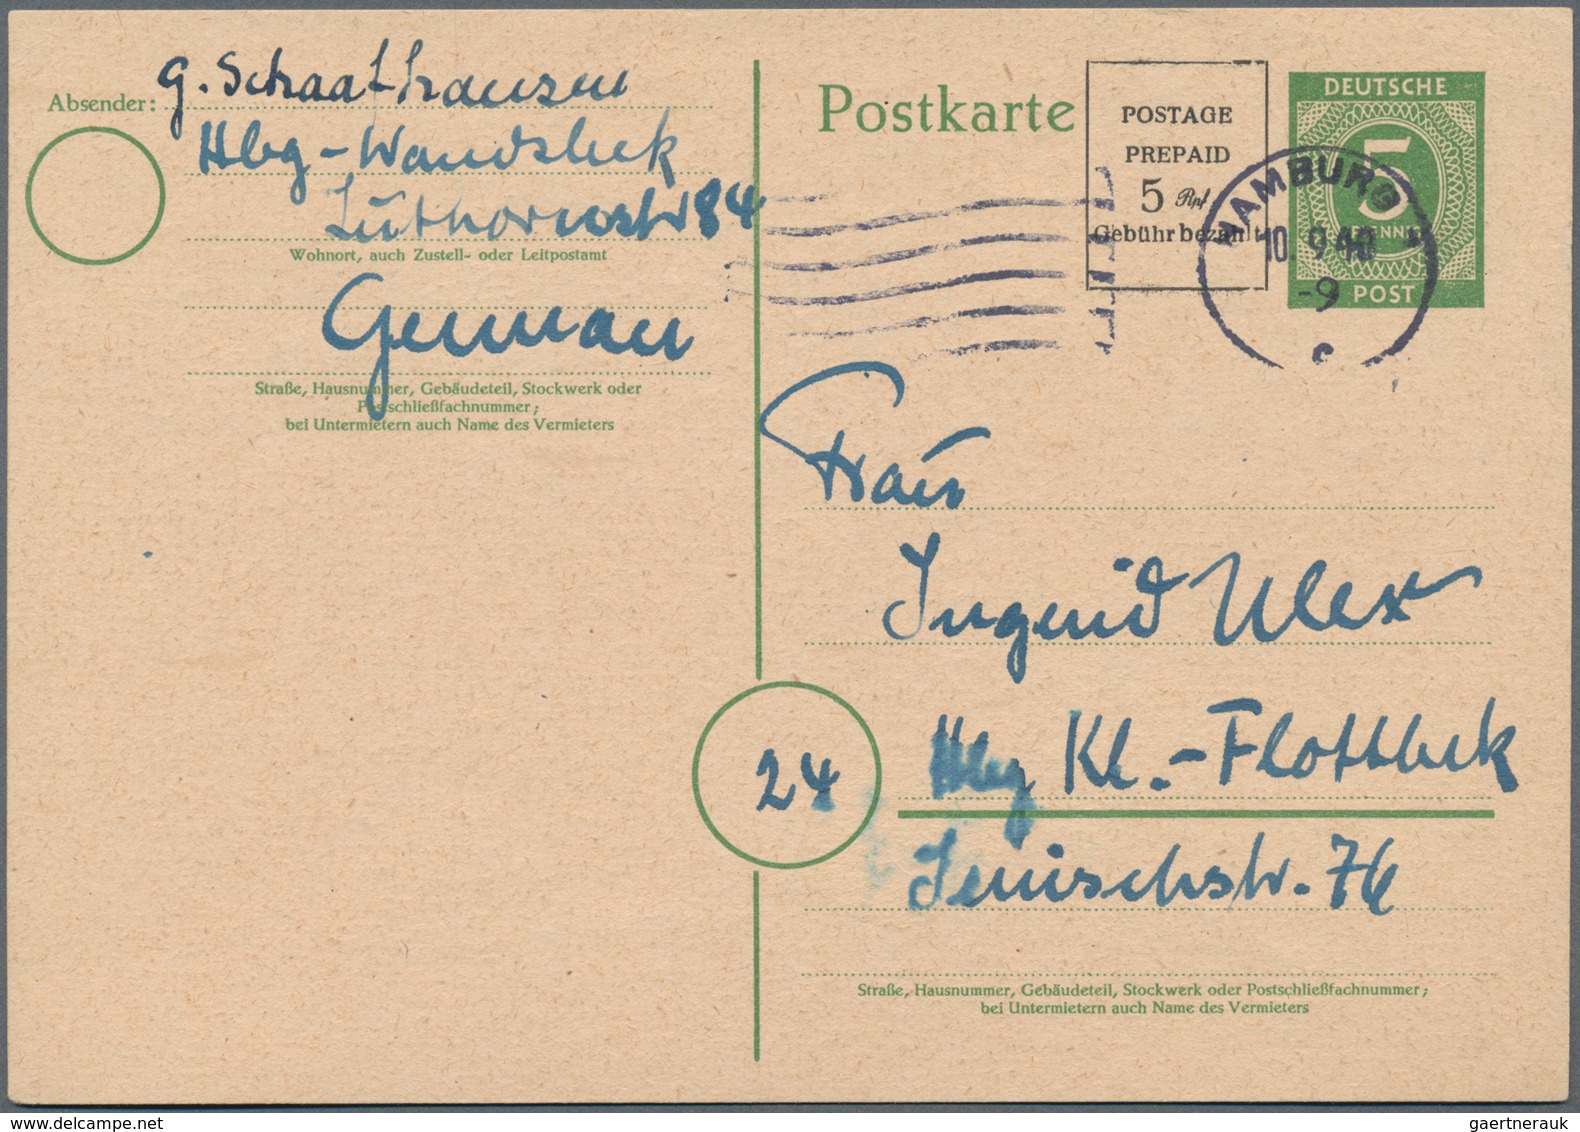 Absender: G. Schaafhausen
Hbg-Wandsbek
Lüthornstr 84
Wohnort, auch Zustell- oder Leitpostamt
German
Straße, Hausnummer, Gebäudeteil, Stockwerk oder
Postschließfachnummer;
bei Untermietern auch Name des Vermieters
Postkarte
POSTAGE
PREPAID
5 Rpf
Gebühr bezahlt
DEUTSCHE
5
PFENNIG
POST
HAMBURG
10. 9.
-9
c
Frau
Ingrid Ulex
24
Hbg Kl.-Flottbek
Jenischstr. 76
Straße, Hausnummer, Gebäudeteil, Stockwerk oder Postschließfachnummer;
bei Untermietern auch Name des Vermieters
gaertnerauk @ delcampe.net